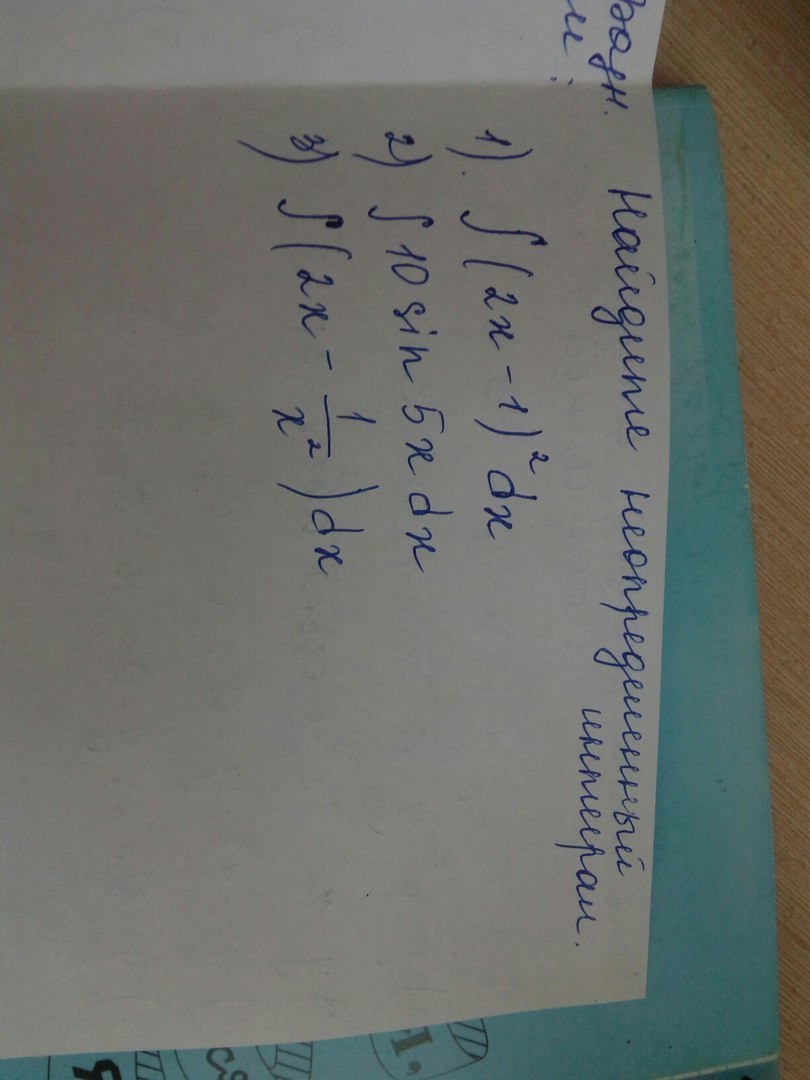 Найдите неопределенный
интеграл.
1) ∫(2x - 1)² dx
2) ∫ 10 sin 5x dx
3) ∫(2x - 1/x²) dx